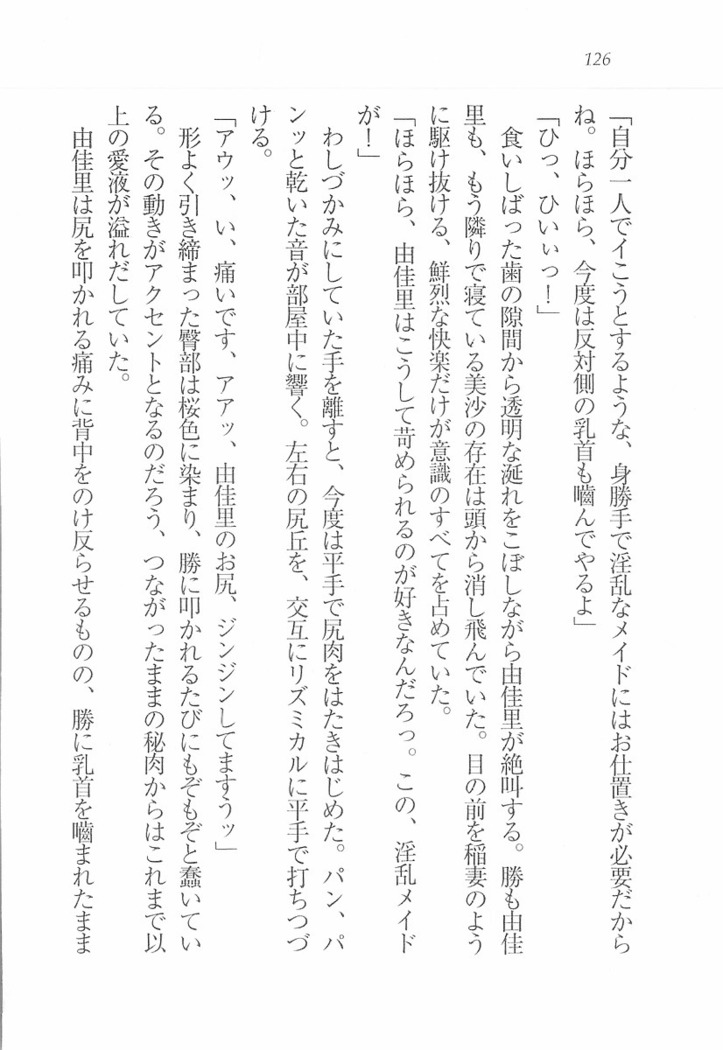 126
「自分一人でイこうとするような、身勝手で淫乱なメイドにはお仕置きが必要だから
ね。ほらほら、今度は反対側の乳首も嚙んでやるよ」
「ひっ、ひいぃっ！」
食いしばった歯の隙間から透明な涎れをこぼしながら由佳里が絶叫する。勝も由佳
里も、もう隣りで寝ている美沙の存在は頭から消し飛んでいた。目の前を稲妻のよう
に駆け抜ける、鮮烈な快楽だけが意識のすべてを占めていた。
「ほらほら、由佳里はこうして苛められるのが好きなんだろっ。この、淫乱メイド
が！」
わしづかみにしていた手を離すと、今度は平手で尻肉をはたきはじめた。パン、パ
ンッと乾いた音が部屋中に響く。左右の尻丘を、交互にリズミカルに平手で打ちつづ
ける。
「アウッ、い、痛いです、アアッ、由佳里のお尻、ジンジンしてますうッ」
形よく引き締まった臀部は桜色に染まり、勝に叩かれるたびにもぞもぞと蠢いてい
る。その動きがアクセントとなるのだろう、つながったままの秘肉からはこれまで以
上の愛液が溢れだしていた。
由佳里は尻を叩かれる痛みに背中をのけ反らせるものの、勝に乳首を嚙まれたまま